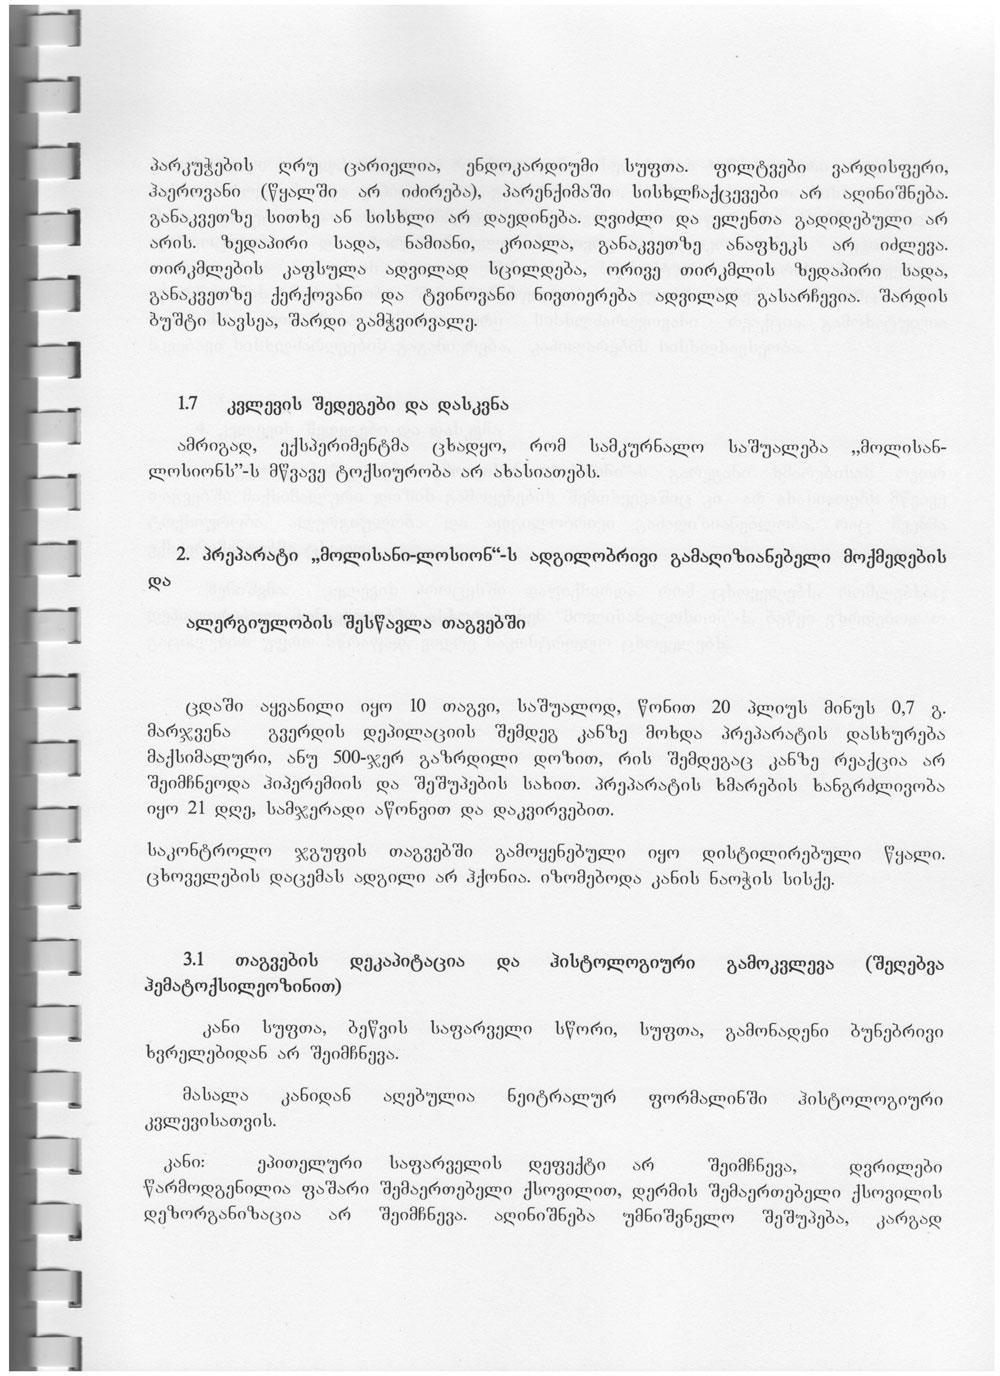 პარკუჭების ღრუ ცარიელია, ენდოკარდიუმი სუფთა. ფილტვები ვარდისფერი,
ჰაეროვანი (წყალში არ იძირება), პარენქიმაში სისხლჩაქცევები არ აღინიშნება.
განაკვეთზე სითხე ან სისხლი არ დაედინება. ღვიძლი და ელენთა გადიდებული არ
არის. ზედაპირი სადა, ნამიანი, კრიალა, განაკვეთზე ანაფხეკს არ იძლევა.
თირკმლების კაფსულა ადვილად სცილდება, ორივე თირკმლის ზედაპირი სადა,
განაკვეთზე ქერქოვანი და ტვინოვანი ნივთიერება ადვილად გასარჩევია. შარდის
ბუშტი სავსეა, შარდი გამჭვირვალე.
1.7 კვლევის შედეგები და დასკვნა
ამრიგად, ექსპერიმენტმა ცხადყო, რომ სამკურნალო საშუალება „მოლისან-
ლოსიონს”-ს მწვავე ტოქსიურობა არ ახასიათებს.
2. პრეპარატი „მოლისანი-ლოსიონ“-ს ადგილობრივი გამაღიზიანებელი მოქმედების
და
ალერგიულობის შესწავლა თაგვებში
ცდაში აყვანილი იყო 10 თაგვი, საშუალოდ, წონით 20 პლიუს მინუს 0,7 გ.
მარჯვენა გვერდის დეპილაციის შემდეგ კანზე მოხდა პრეპარატის დასხურება
მაქსიმალური, ანუ 500-ჯერ გაზრდილი დოზით, რის შემდეგაც კანზე რეაქცია არ
შეიმჩნეოდა ჰიპერემიის და შეშუპების სახით. პრეპარატის ხმარების ხანგრძლივობა
იყო 21 დღე, სამჯერადი აწონვით და დაკვირვებით.
საკონტროლო ჯგუფის თაგვებში გამოყენებული იყო დისტილირებული წყალი.
ცხოველების დაცემას ადგილი არ ჰქონია. იზომებოდა კანის ნაოჭის სისქე.
3.1 თაგვების დეკაპიტაცია და ჰისტოლოგიური გამოკვლევა (შეღებვა
ჰემატოქსილეოზინით)
კანი სუფთა, ბეწვის საფარველი სწორი, სუფთა, გამონადენი ბუნებრივი
ხვრელებიდან არ შეიმჩნევა.
მასალა კანიდან აღებულია ნეიტრალურ ფორმალინში ჰისტოლოგიური
კვლევისათვის.
კანი: ეპითელური საფარველის დეფექტი არ შეიმჩნევა, დვრილები
წარმოდგენილია ფაშარი შემაერთებელი ქსოვილით, დერმის შემაერთებელი ქსოვილის
დეზორგანიზაცია არ შეიმჩნევა. აღინიშნება უმნიშვნელო შეშუპება, კარგად